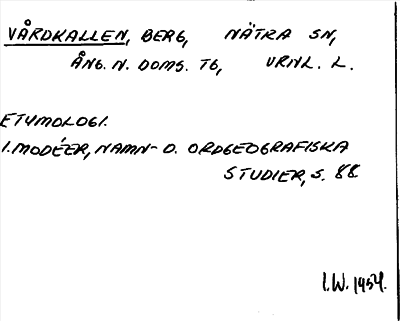 VÅRDKALLEN, BERG, NÄTRA SN,
ÅNG. N. DOMS. TG, VRNL. L.
ETYMOLOGI.
I. MODÉER, NAMN- O. ORDGEOGRAFISKA
STUDIER, S. 88.
I.W. 1954.